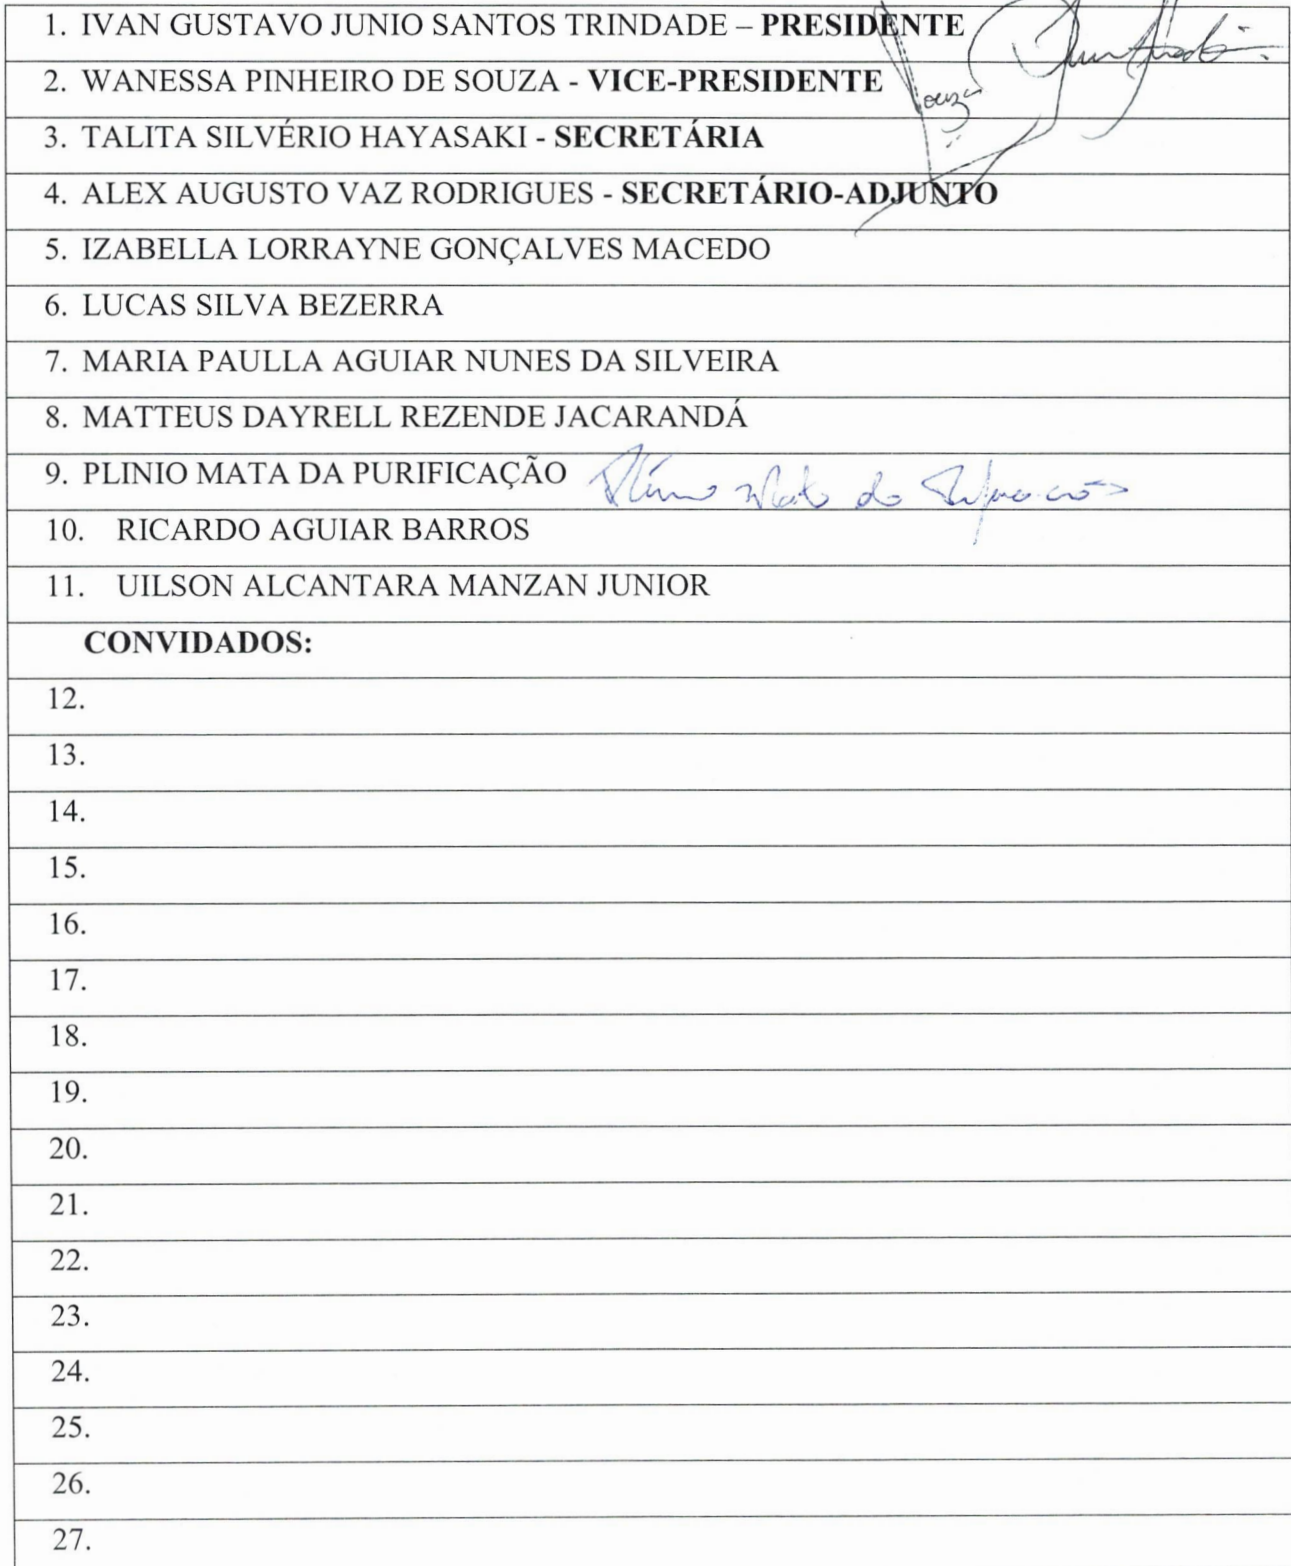 1. IVAN GUSTAVO JUNIO SANTOS TRINDADE – PRESIDENTE
2. WANESSA PINHEIRO DE SOUZA - VICE-PRESIDENTE
3. TALITA SILVÉRIO HAYASAKI - SECRETÁRIA
4. ALEX AUGUSTO VAZ RODRIGUES - SECRETÁRIO-ADJUNTO
5. IZABELLA LORRAYNE GONÇALVES MACEDO
6. LUCAS SILVA BEZERRA
7. MARIA PAULLA AGUIAR NUNES DA SILVEIRA
8. MATTEUS DAYRELL REZENDE JACARANDÁ
9. PLINIO MATA DA PURIFICAÇÃO
10. RICARDO AGUIAR BARROS
11. UILSON ALCANTARA MANZAN JUNIOR
CONVIDADOS:
12.
13.
14.
15.
16.
17.
18.
19.
20.
21.
22.
23.
24.
25.
26.
27.